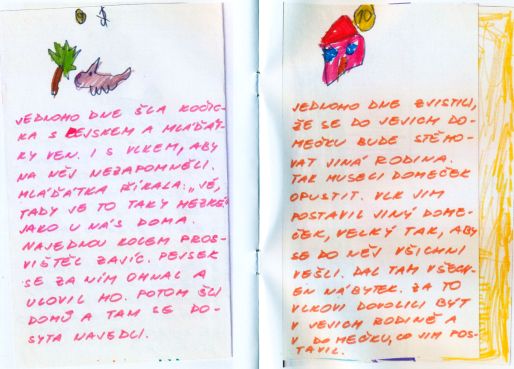 9
JEDNOHO DNE ŠLA KOČIČ-
KA S PEJSKEM A MLÁĎÁT-
KY VEN. I S VLKEM, ABY
NA NĚJ NEZAPOMNĚLI.
MLÁĎÁTKA ŘÍKALA: „JÉ,
TADY JE TO TAKY HEZKÉ
JAKO U NÁS DOMA.
NAJEDNOU KOLEM PROS-
VIŠTĚL ZAJÍC. PEJSEK
SE ZA NÍM OHNAL A
ULOVIL HO. POTOM ŠLI
DOMŮ A TAM SE DO-
SYTA NAJEDLI.
10
JEDNOHO DNE ZJISTILI,
ŽE SE DO JEJICH DO-
MEČKU BUDE STĚHO-
VAT JINÁ RODINA.
TAK MUSELI DOMEČEK
OPUSTIT. VLK JIM
POSTAVIL JINÝ DOME-
ČEK, VELKÝ TAK, ABY
SE DO NĚJ VŠICHNI
VEŠLI. DAL TAM VŠECH-
EN NÁBYTEK. ZA TO
VLKOVI DOVOLILI BÝT
V JEJICH RODINĚ A
V DOMEČKU, CO JIM POS-
TAVIL.